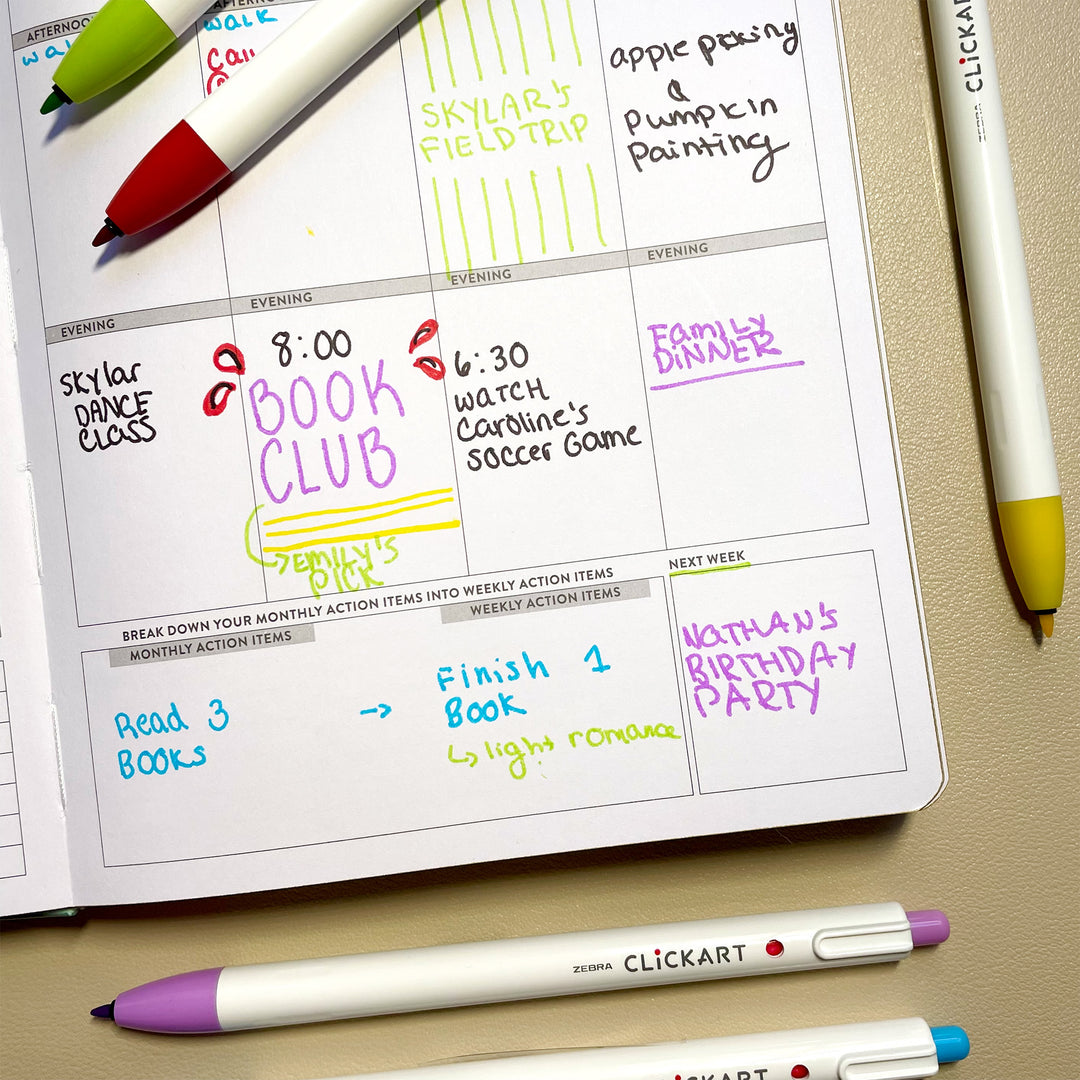 AFTERNOO
walk
call
SKYLAR'S
FIELD TRIP
apple picking
&
pumpkin
painting
EVENING
Skylar
DANCE
CLASS
EVENING
8:00
BOOK
CLUB
EMILY'S
PICK
EVENING
6:30
WATCH
Caroline's
SOCCER Game
EVENING
FamiLY
DiNNER
BREAK DOWN YOUR MONTHLY ACTION ITEMS INTO WEEKLY ACTION ITEMS
MONTHLY ACTION ITEMS
Read 3
BOOKS
→
WEEKLY ACTION ITEMS
Finish 1
BOOK
light romance
NEXT WEEK
NATHAN'S
BIRTHDAY
PARTY
ZEBRA CLiCKART
ZEBRA CLiCKART
CLiCKART